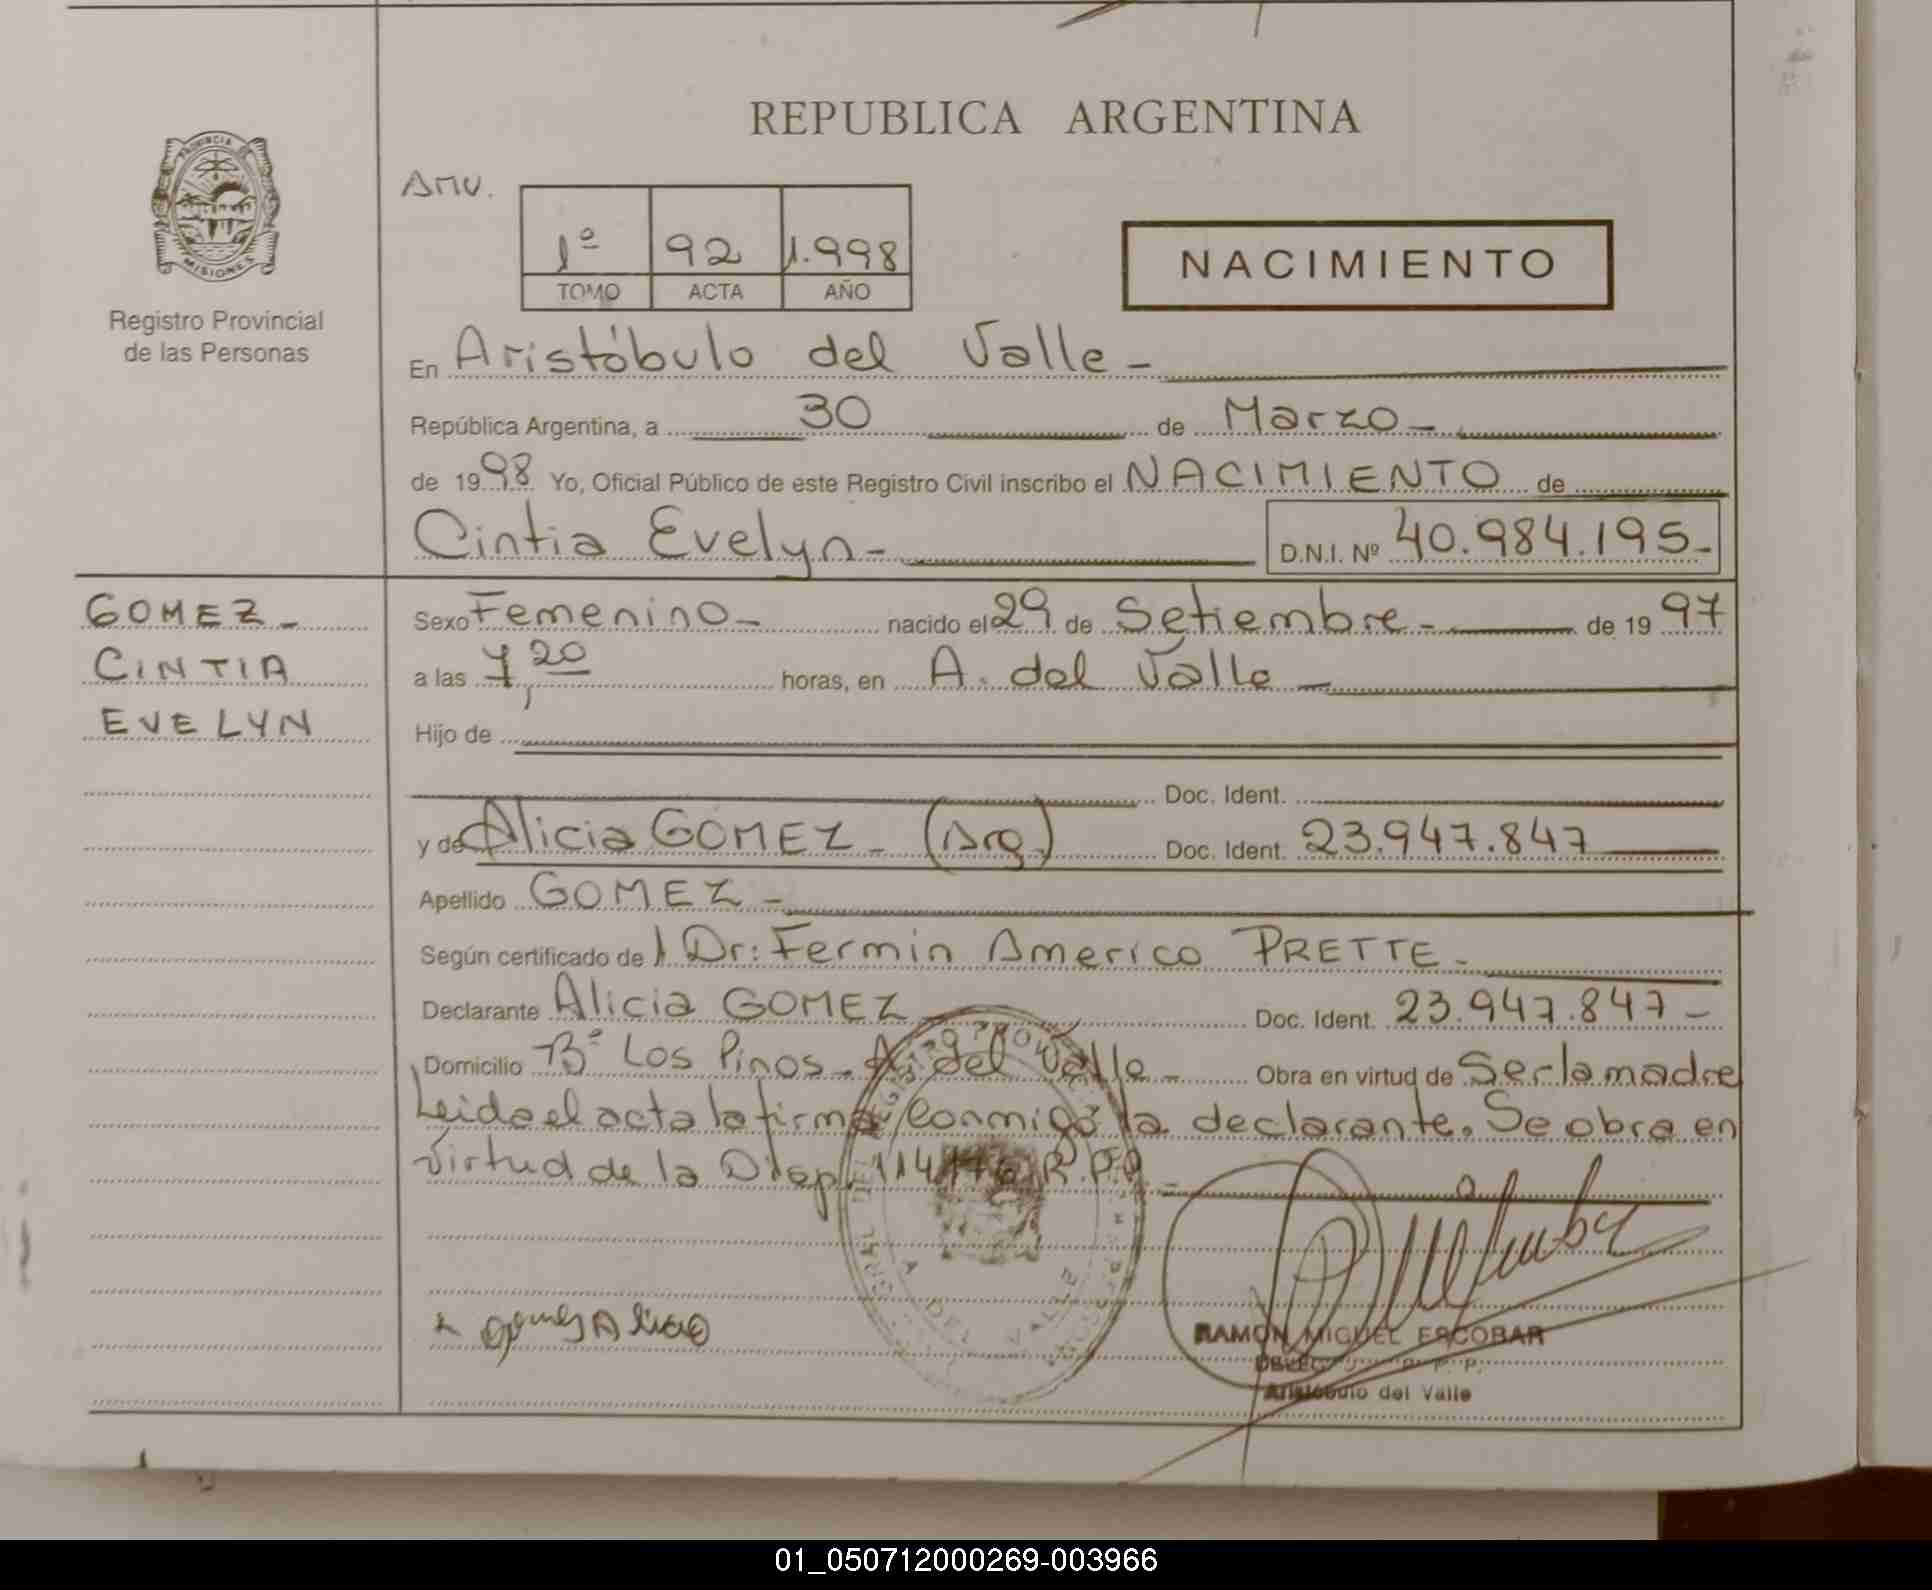 REPUBLICA ARGENTINA
PROVINCIA DE
MISIONES
Registro Provincial
de las Personas
AMV.
1º 92 1.998
TOMO ACTA AÑO
NACIMIENTO
En Aristóbulo del Valle -
República Argentina, a 30 de Marzo -
de 1998 Yo, Oficial Público de este Registro Civil inscribo el NACIMIENTO de
Cintia Evelyn - D.N.I. Nº 40.984.195-
GOMEZ -
CINTIA
EVELYN
Sexo Femenino - nacido el 29 de Setiembre - de 1997
a las 7,20 horas, en A. del Valle -
Hijo de
Doc. Ident.
y de Alicia GOMEZ - (Arg.) Doc. Ident. 23.947.847
Apellido GOMEZ -
Según certificado de l Dr: Fermin Americo PRETTE -
Declarante Alicia GOMEZ - Doc. Ident. 23.947.847 -
Domicilio Bº Los Pinos - A. del Valle - Obra en virtud de Ser la madre
Leida el acta la firma conmigo la declarante. Se obra en
virtud de la Disp. R.P.P. -
A. DEL VALLE
Gomez Alicia
RAMON MIGUEL ESCOBAR
R. P. P.
Aristóbulo del Valle
01_050712000269-003966